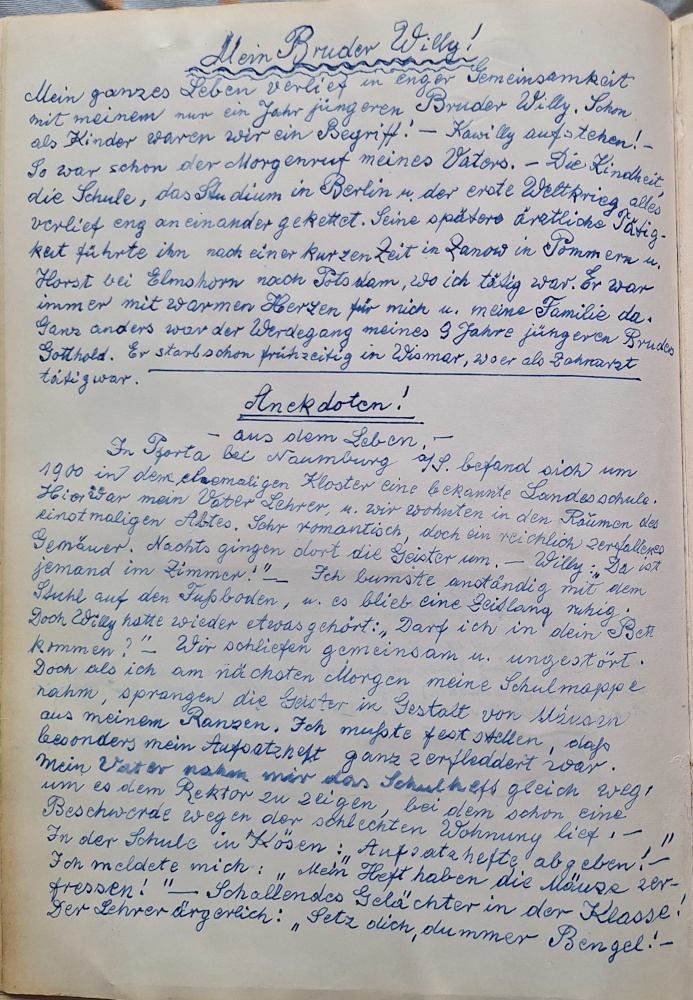 Mein Bruder Willy!
Mein ganzes Leben verlief in enger Gemeinsamkeit
mit meinem nur ein Jahr jüngeren Bruder Willy. Schon
als Kinder waren wir ein Begriff! – Kawilly aufstehen! –
So war schon der Morgenruf meines Vaters. – Die Kindheit,
die Schule, das Studium in Berlin u. der erste Weltkrieg, alles
verlief eng aneinander gekettet. Seine spätere ärztliche Tätig-
keit führte ihn nach einer kurzen Zeit in Zanow in Pommern u.
Horst bei Elmshorn nach Potsdam, wo ich tätig war. Er war
immer mit warmen Herzen für mich u. meine Familie da.
Ganz anders war der Werdegang meines 9 Jahre jüngeren Bruders
Gotthold. Er starb schon frühzeitig in Wismar, wo er als Zahnarzt
tätig war.
Anekdoten!
– aus dem Leben. –
In Pforta bei Naumburg a/S. befand sich um
1900 in dem ehemaligen Kloster eine bekannte Landesschule.
Hier war mein Vater Lehrer, u. wir wohnten in den Räumen des
einstmaligen Abtes. Sehr romantisch, doch ein reichlich zerfallenes
Gemäuer. Nachts gingen dort die Geister um. – Willy: „Da ist
jemand im Zimmer!" – Ich bumste anständig mit dem
Stuhl auf den Fußboden, u. es blieb eine Zeitlang ruhig.
Doch Willy hatte wieder etwas gehört: „Darf ich in dein Bett
kommen?" – Wir schliefen gemeinsam u. ungestört.
Doch als ich am nächsten Morgen meine Schulmappe
nahm, sprangen die Geister in Gestalt von Mäusen
aus meinem Ranzen. Ich mußte feststellen, daß
besonders mein Aufsatzheft ganz zerfleddert war.
Mein Vater nahm mir das Schulheft gleich weg,
um es dem Rektor zu zeigen, bei dem schon eine
Beschwerde wegen der schlechten Wohnung lief. –
In der Schule in Kösen: „Aufsatzhefte abgeben! –"
Ich meldete mich: „Mein Heft haben die Mäuse zer-
fressen!" – Schallendes Gelächter in der Klasse!
Der Lehrer ärgerlich: „Setz dich, dummer Bengel! –